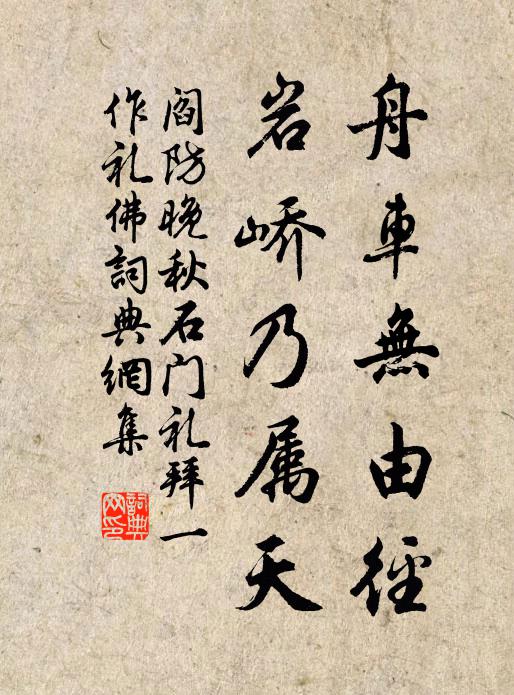 舟車無由徑
岩峤乃属天
阎防晚秋石门礼拜一
作礼佛詞典網集
詞典網印